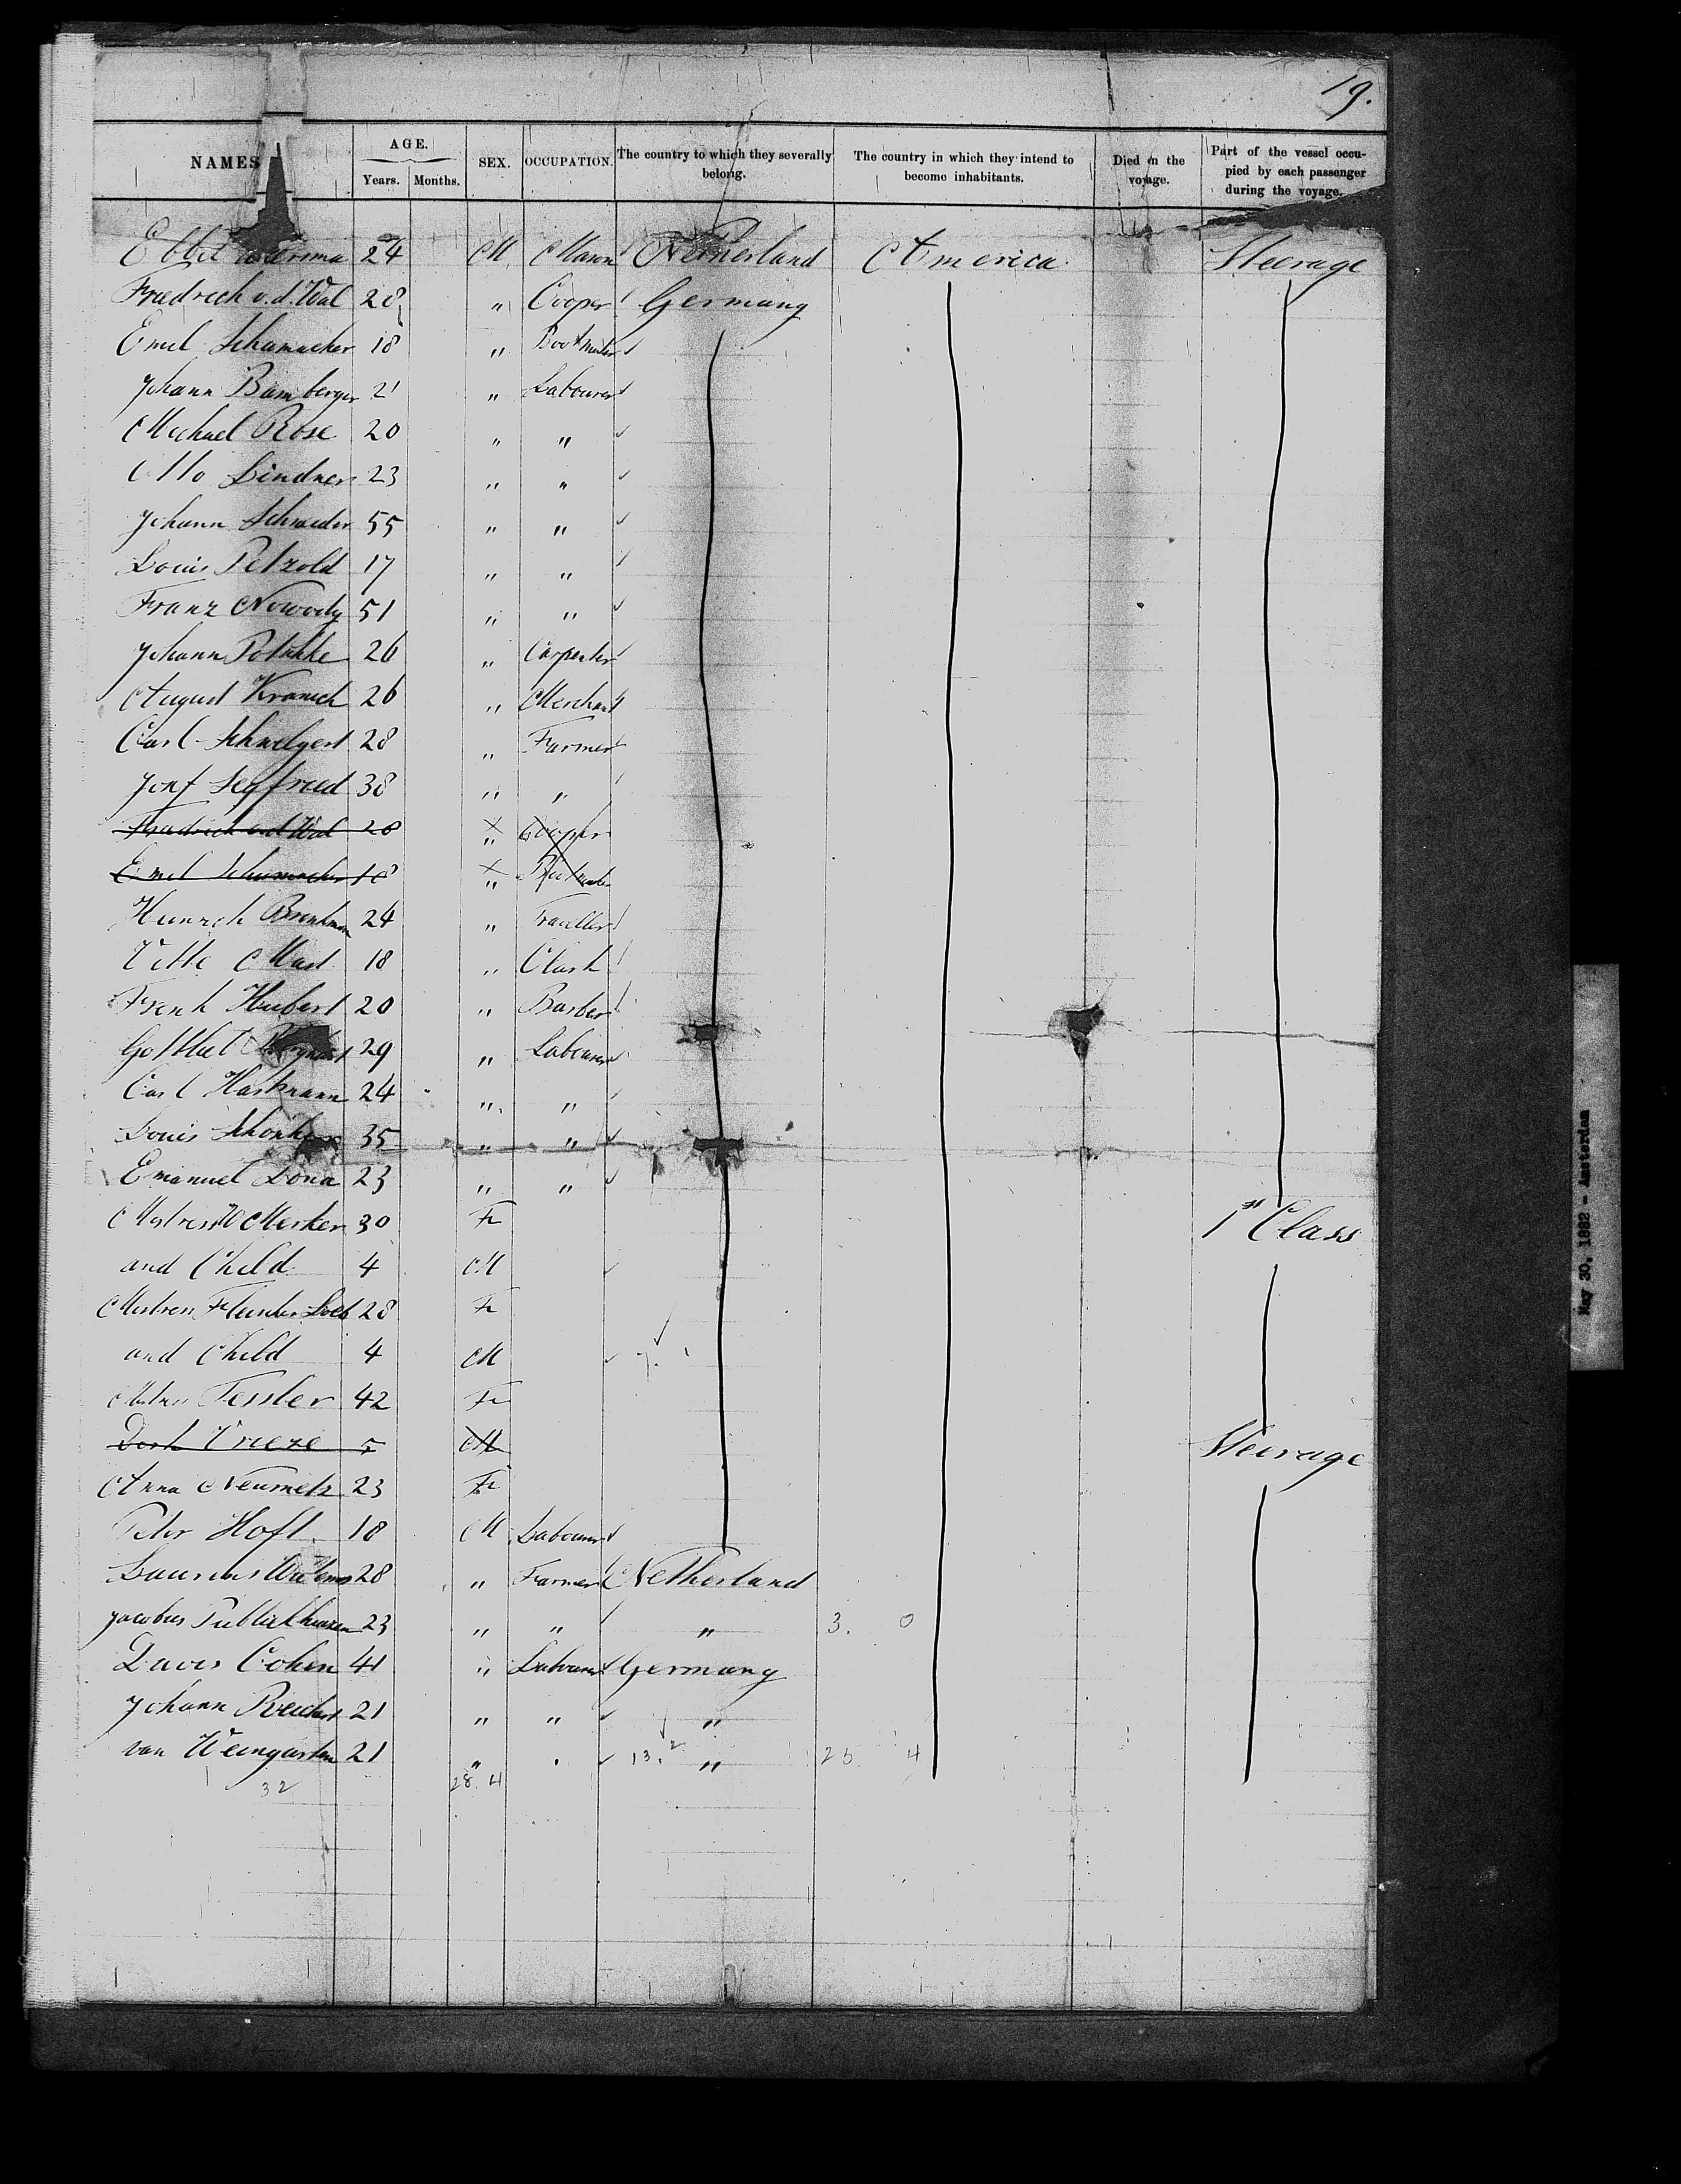 19.
NAMES AGE. Years. Months. SEX. OCCUPATION. The country to which they severally belong. The country in which they intend to become inhabitants. Died on the voyage. Part of the vessel occupied by each passenger during the voyage.
Ebbel 24 M Mason Netherland America Steerage
Friedrich v. d. Wal 28 " Cooper Germany
Emil Schumacher 18 " Bootmaker
Johann Bamberger 21 " Labourer
Michael Rose 20 " "
Otto Lindner 23 " "
Johann Schneider 55 " "
Louis Petzold 17 " "
Franz 51 " "
Johann 26 " Carpenter
August Kranich 26 " Merchant
Carl 28 " Farmer
Josef Segfried 38 " "
Friedrich v d Wal 28 " Cooper
Emil Schumacher 18 " Bootmaker
Heinrich 24 " Traveller
18 " Clark
Frank Hubert 20 " Barber
Gottlieb 29 " Labourer
Carl Hartmann 24 " "
Louis 35 " "
Emanuel Lona 23 " "
Mistress W Merker 30 Fe 1st Class
and Child 4 M
Mistress 28 Fe
and Child 4 M
Mistress Tessler 42 Fe
Vrieze 5 M Steerage
Anna Neumetz 23 Fe
Peter Hoft 18 M Labourer
Laurens Willems 28 " Farmer Netherland
Jacobus 23 " " " 3. 0
Davis Cohen 41 " Labourer Germany
Johann Reichert 21 " " "
van Weingarten 21 " " 13. 2 " 25 4
32 28 4
May 30, 1882 - Amsterdam